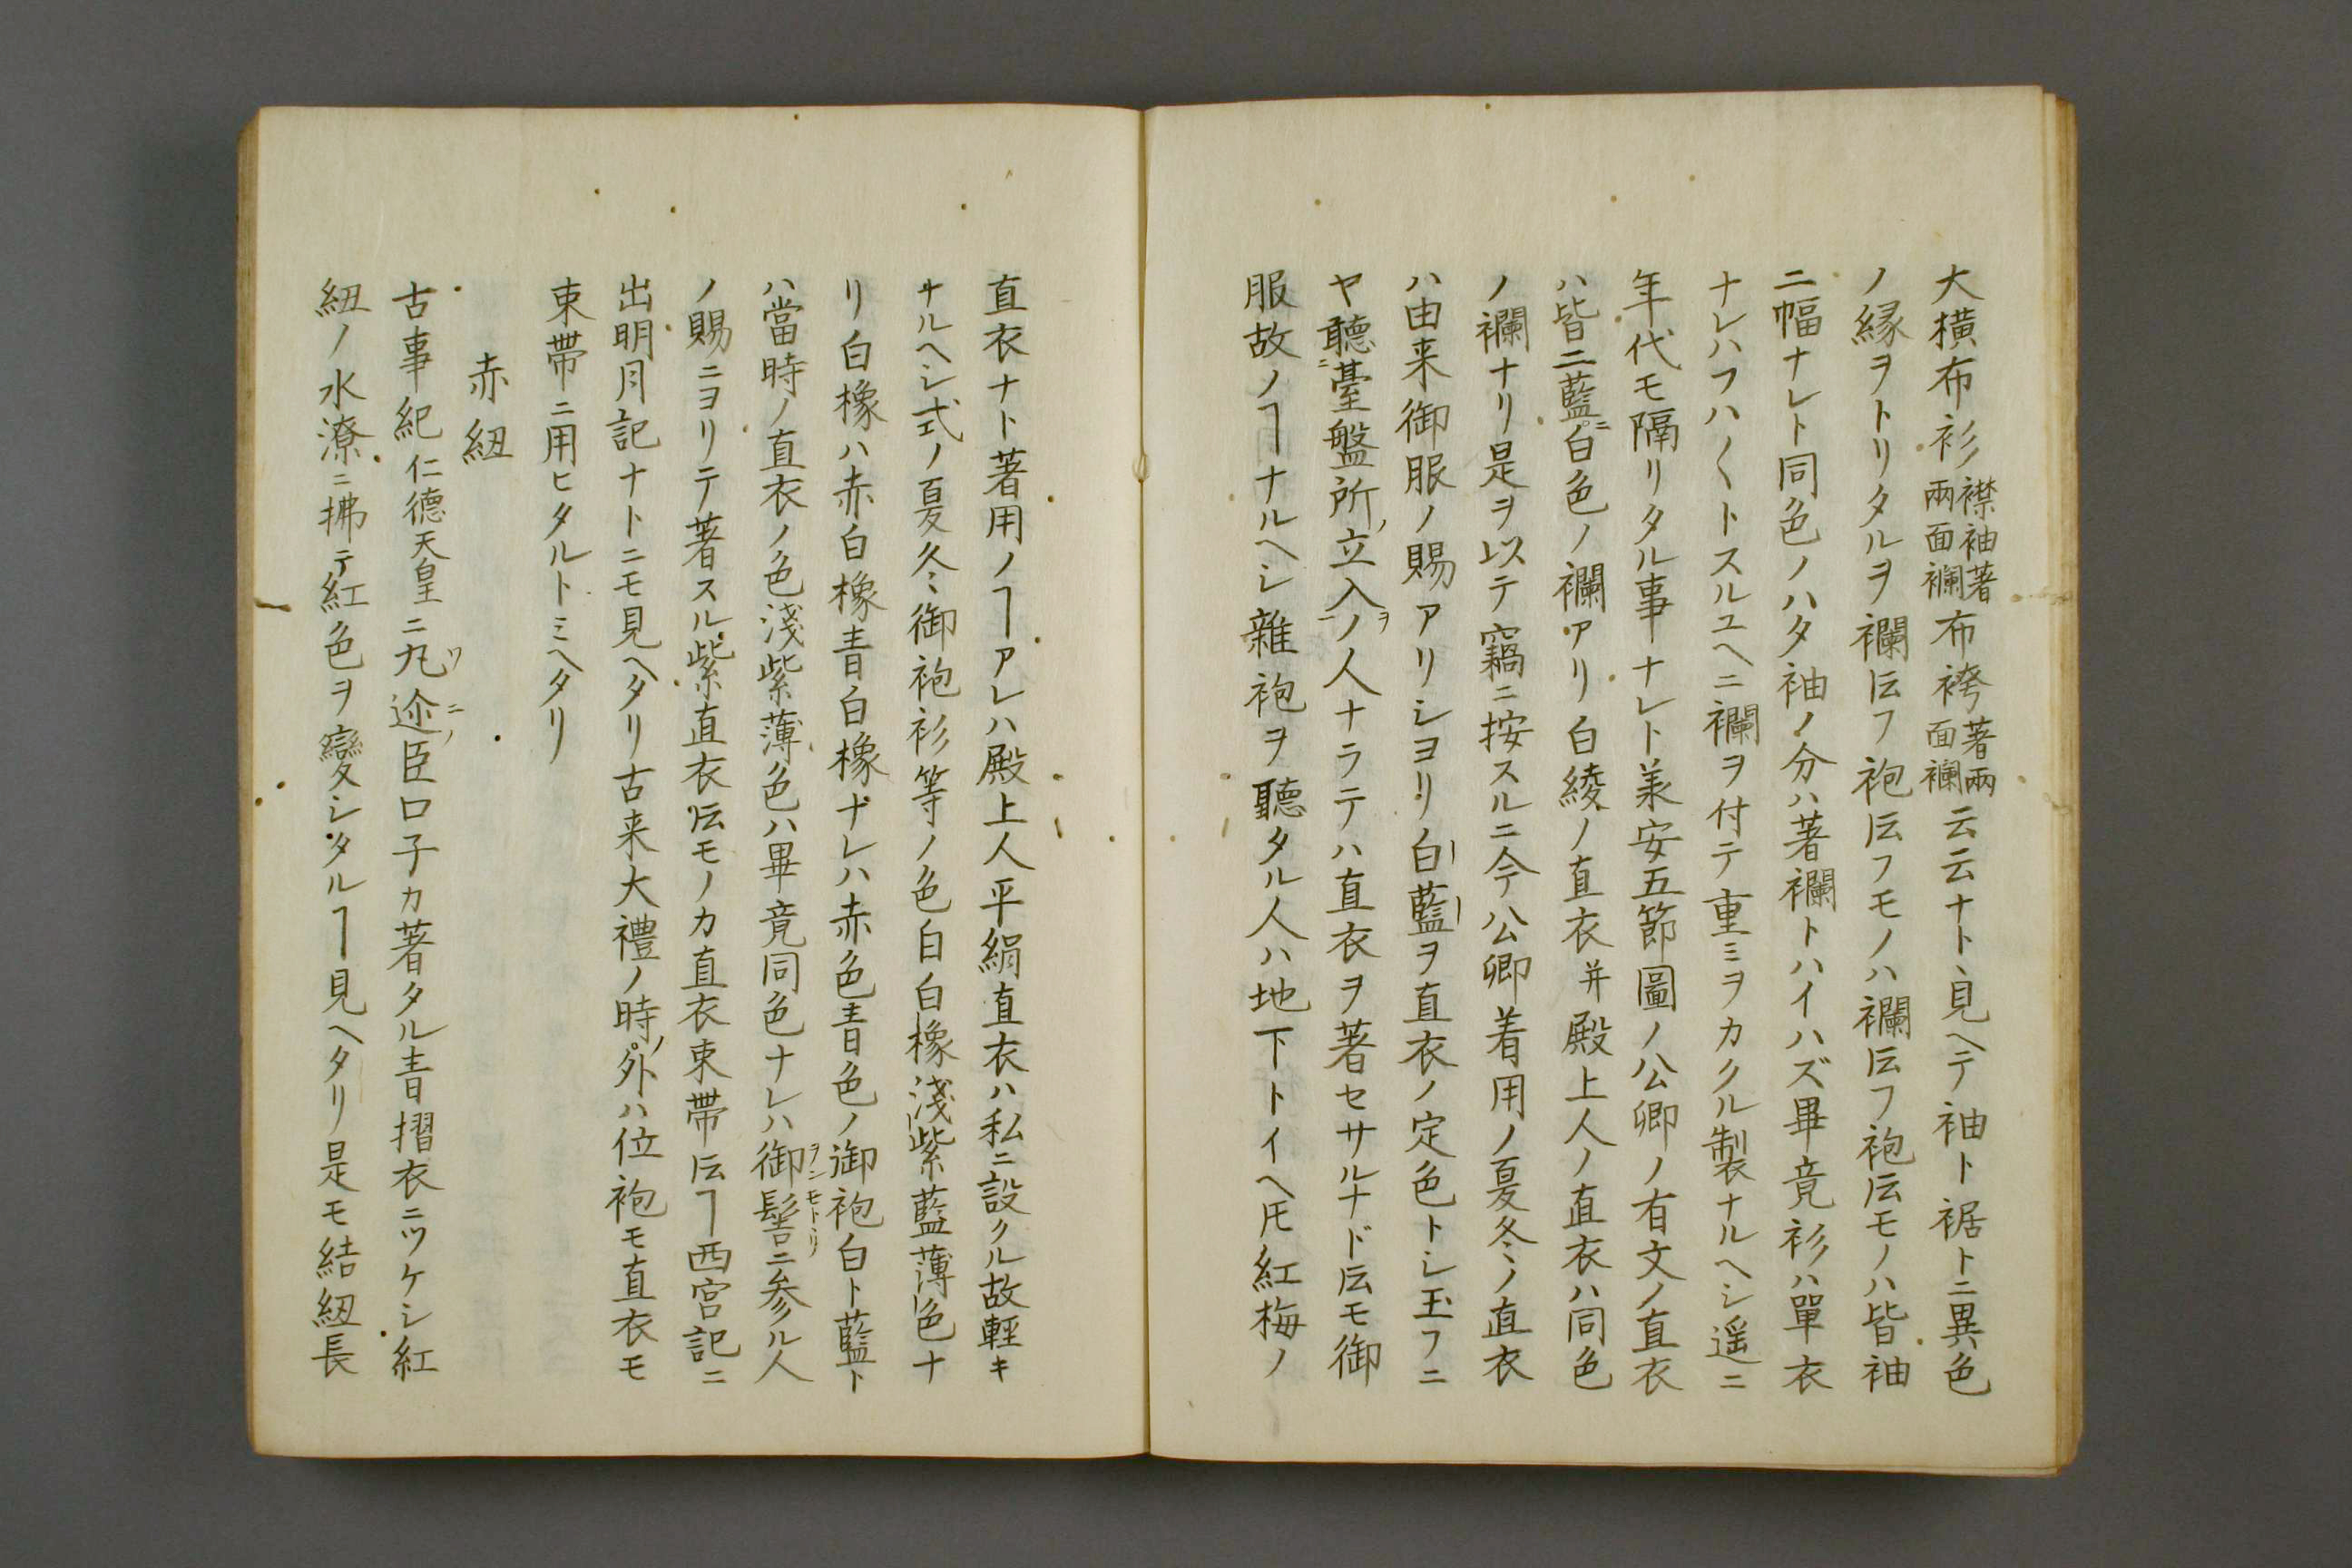 大横布衫襟袖著兩面襴布袴著兩面襴云云ナトヽ見ヘテ袖ト裾トニ異色
ノ縁ヲトリタルヲ襴𫢉フ袍𫢉フモノハ襴𫢉フ袍𫢉モノハ皆袖
二幅ナレト同色ノハタ袖ノ分ハ著襴トハイハズ畢竟衫ハ單衣
ナレハフハ〱トスルユヘニ襴ヲ付テ重ミヲカクル製ナルヘシ遥ニ
年代モ隔リタル事ナレト羕安五節圖ノ公卿ノ有文ノ直衣
ハ皆二藍ニ白色ノ襴アリ白綾ノ直衣并殿上人ノ直衣ハ同色
ノ襴ナリ是ヲ以テ竊ニ按スルニ今公卿着用ノ夏冬ノ直衣
ハ由来御服ノ賜アリシヨリ白藍ヲ直衣ノ定色トシ玉フニ
ヤ聽臺盤所ノ立入ノ人ナラテハ直衣ヲ著セサルナド𫢉モ御
服故ノヿナルヘシ雜袍ヲ聽タル人ハ地下トイヘ𪜈紅梅ノ
直衣ナト著用ノヿアレハ殿上人平絹直衣ハ私ニ設クル故軽キ
ナルヘシ式ノ夏冬御袍衫等ノ色白白橡淺紫藍薄色ナ
リ白橡ハ赤白橡青白橡ナレハ赤色青色ノ御袍白ト藍ト
ハ當時ノ直衣ノ色淺紫薄色ハ畢竟同色ナレハ御髻ヲンモトリニ参ル人
ノ賜ニヨリテ著スル紫直衣𫢉モノカ直衣束帶𫢉ヿ西宮記ニ
出明月記ナトニモ見ヘタリ古来大禮ノ時ノ外ハ位袍モ直衣モ
束帶ニ用ヒタルトミヘタリ
赤紐
古事紀仁德天皇ニ丸ワ迩ニノ臣口子カ著タル青摺衣ニツケシ紅
紐ノ水潦ニ拂テ紅色ヲ變シタルヿ見ヘタリ是モ結紐長